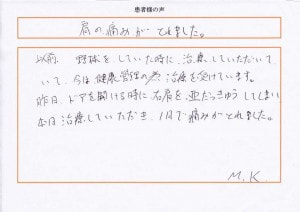 患者様の声
肩の痛みがとれました。
以前、野球をしていた時に、治療していただいて
いて、今は健康管理の為治療を受けています。
昨日、ドアを開ける時に右肩を亜だっきゅうしてしまい
本日治療していただき、1回で痛みがとれました。
M.K.